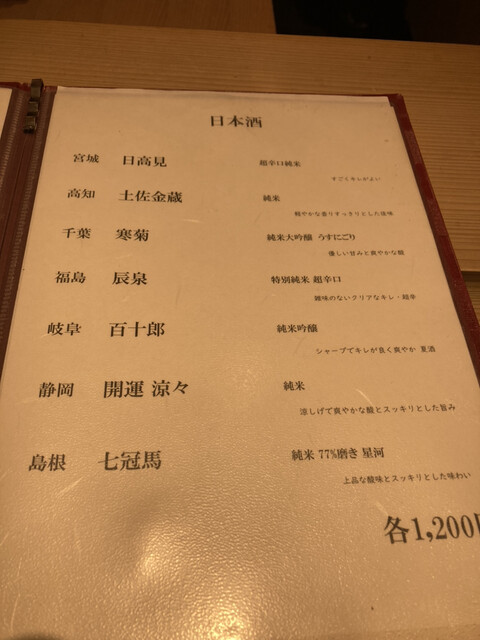 日本酒
宮城 日高見 超辛口純米
すごくキレがよい
高知 土佐金蔵 純米
軽やかな香りすっきりとした後味
千葉 寒菊 純米大吟醸 うすにごり
優しい甘みと爽やかな酸
福島 辰泉 特別純米 超辛口
雑味のないクリアなキレ・超辛
岐阜 百十郎 純米吟醸
シャープでキレが良く爽やか 夏酒
静岡 開運 涼々 純米
涼しげで爽やかな酸とスッキリとした旨み
島根 七冠馬 純米 77%磨き 星河
上品な酸味とスッキリとした味わい
各1,200円